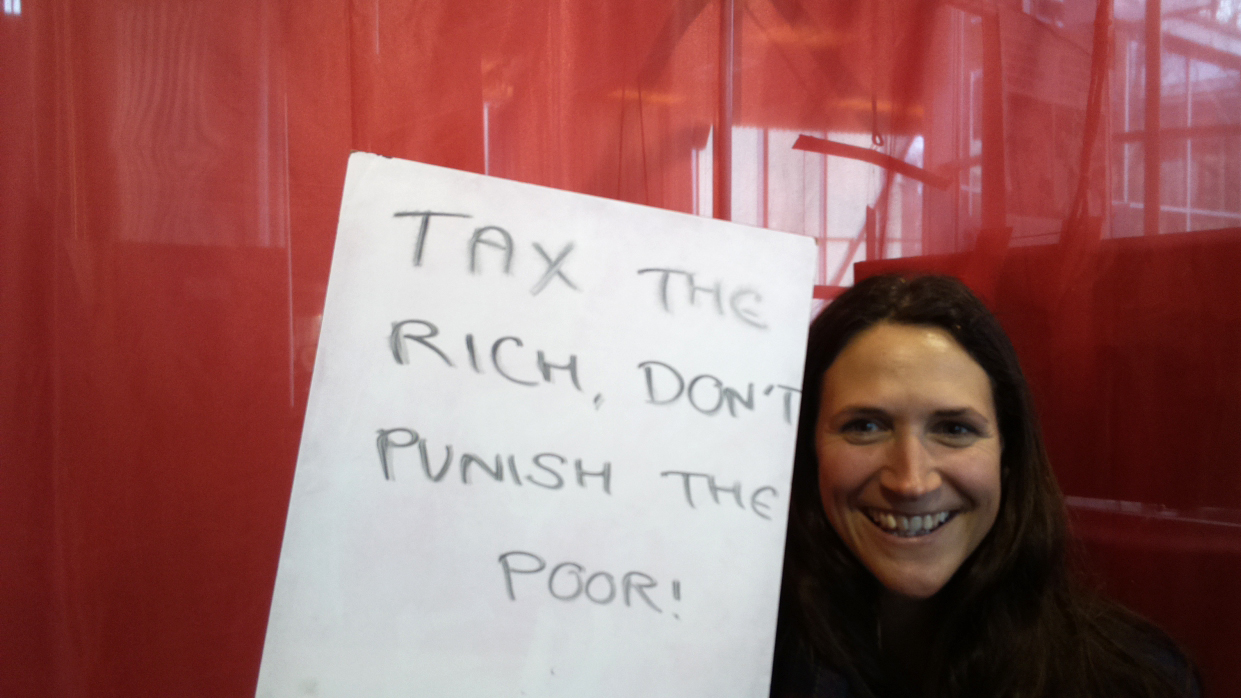 TAX THE
RICH, DON'T
PUNISH THE
POOR!